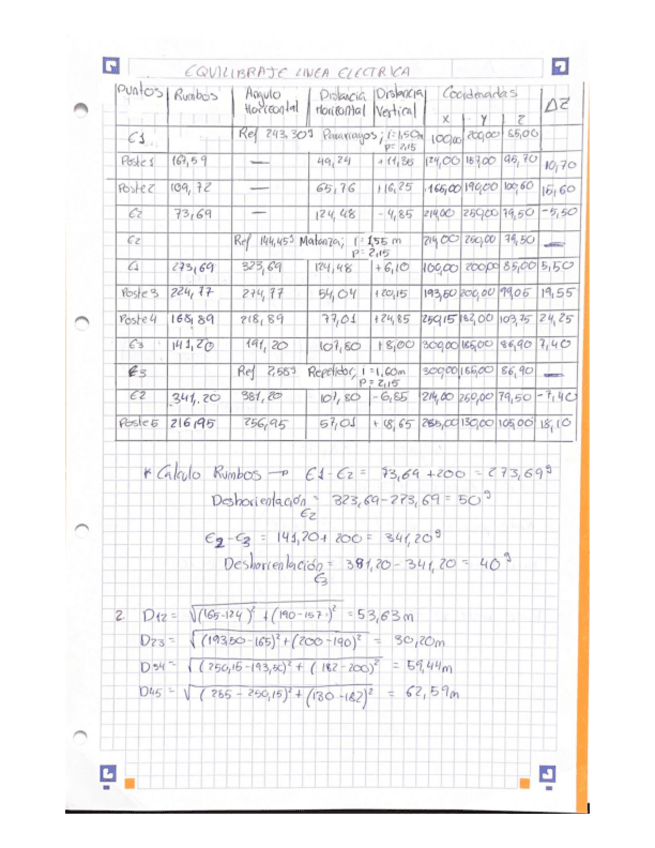 EQUILIBRAJE LINEA ELECTRICA
Puntos Rumbos Angulo Horizontal Distancia Horizontal Distancia Vertical Coordenadas ΔZ
X Y Z
E1 Ref 243,30g Pararrayos; i=1,50m P=2,15 100,00 200,00 85,00
Poste 1 167,59 — 49,24 +11,35 124,00 157,00 95,70 10,70
Poste 2 109,72 — 65,76 +16,25 165,00 190,00 100,60 15,60
E2 73,69 — 124,48 -4,85 214,00 250,00 79,50 -5,50
E2 Ref 144,45g Matanza; i=1,55 m P=2,15 214,00 250,00 79,50 —
E1 273,69 323,69 124,48 +6,10 100,00 200,00 85,00 5,50
Poste 3 224,77 274,77 54,04 +20,15 193,50 200,00 99,05 19,55
Poste 4 168,89 218,89 77,01 +24,85 250,15 182,00 103,75 24,25
E3 141,20 191,20 107,80 +8,00 300,00 185,00 86,90 7,40
E3 Ref 2,55g Repetidor, i=1,60m P=2,15 300,00 165,00 86,90 —
E2 341,20 381,20 107,80 -6,85 214,00 250,00 79,50 -7,40
Poste 5 216,95 256,95 57,01 +18,65 285,00 130,00 105,00 18,10
* Calculo Rumbos → E1-E2 = 73,69 +200 = 273,69g
Deshorientación E2 = 323,69-273,69 = 50g
E2-E3 = 141,20+ 200 = 341,20g
Deshorientación E3 = 381,20 - 341,20 = 40g
2 D12 = √(165-124)² + (190-157)² = 53,63m
D23 = √(193,50-165)²+(200-190)² = 30,20m
D34 = √(250,15-193,50)² + (182-200)² = 59,44m
D45 = √(285 - 250,15)² + (130 -182)² = 62,59m